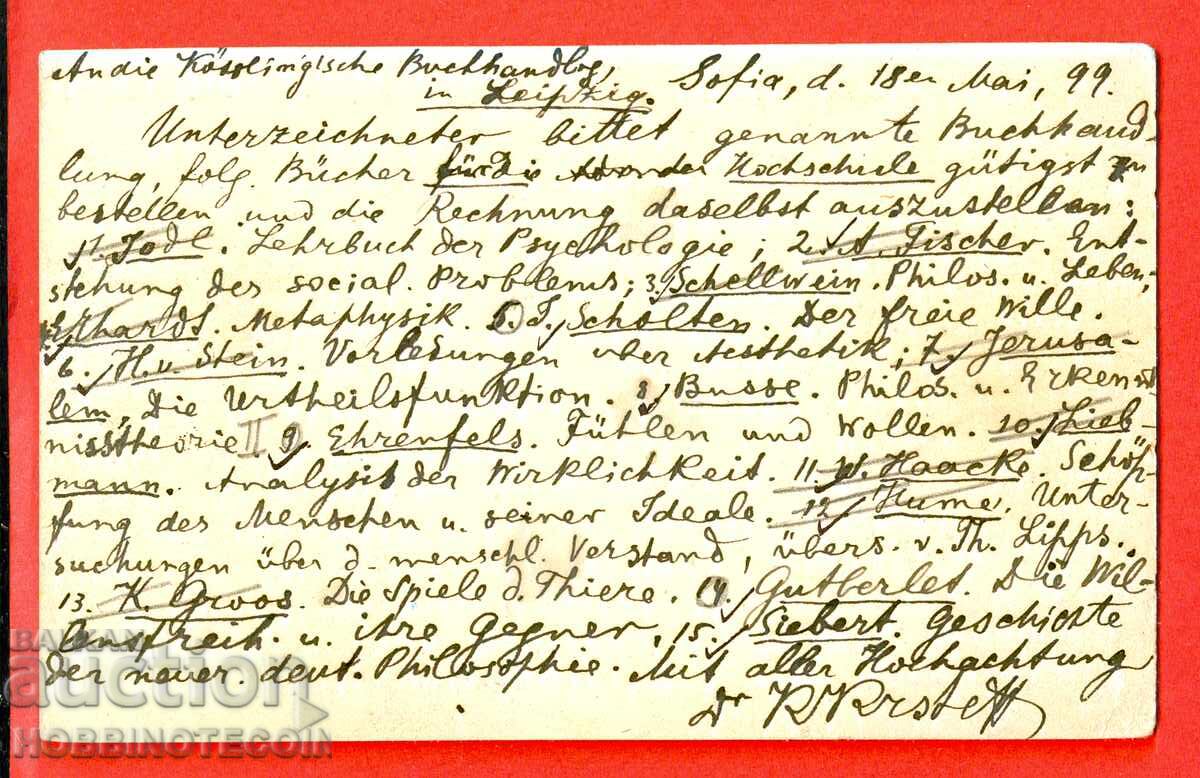 An die Kösslingische Buchhandlg,
in Leipzig.
Sofia, d. 18en Mai, 99.
Unterzeichneter bittet genannte Buchhand-
lung, folg. Bücher für die Hochschule gütigst zu
bestellen und die Rechnung daselbst auszustellen:
1. Jodl. Lehrbuch der Psychologie; 2. A. Fischer. Ent-
stehung des social. Problems; 3. Schellwein. Philos. u. Leben;
4. Ehardt. Metaphysik. 5. J. Scholten. Der freie Wille.
6. H. v. Stein. Vorlesungen über Aesthetik; 7. Jerusa-
lem, Die Urtheilsfunktion. 8. Busse. Philos. u. Erkennt
nisstheorie II 9. Ehrenfels. Fühlen und Wollen. 10. Lieb-
mann. Analysis der Wirklichkeit. 11. W. Haacke. Schöp-
fung des Menschen u. seiner Ideale. 12. Hume. Unter-
suchungen über d. menschl. Verstand, übers. v. Th. Lipps.
13. K. Groos. Die Spiele d. Thiere. 14. Gutberlet. Die Wil-
lensfreih. u. ihre Gegner, 15. Siebert. Geschichte
der neuer. deut. Philosophie. Mit aller Hochachtung
Dr K Krsteff
BALKAN
auction
HOBBINOTECOIN